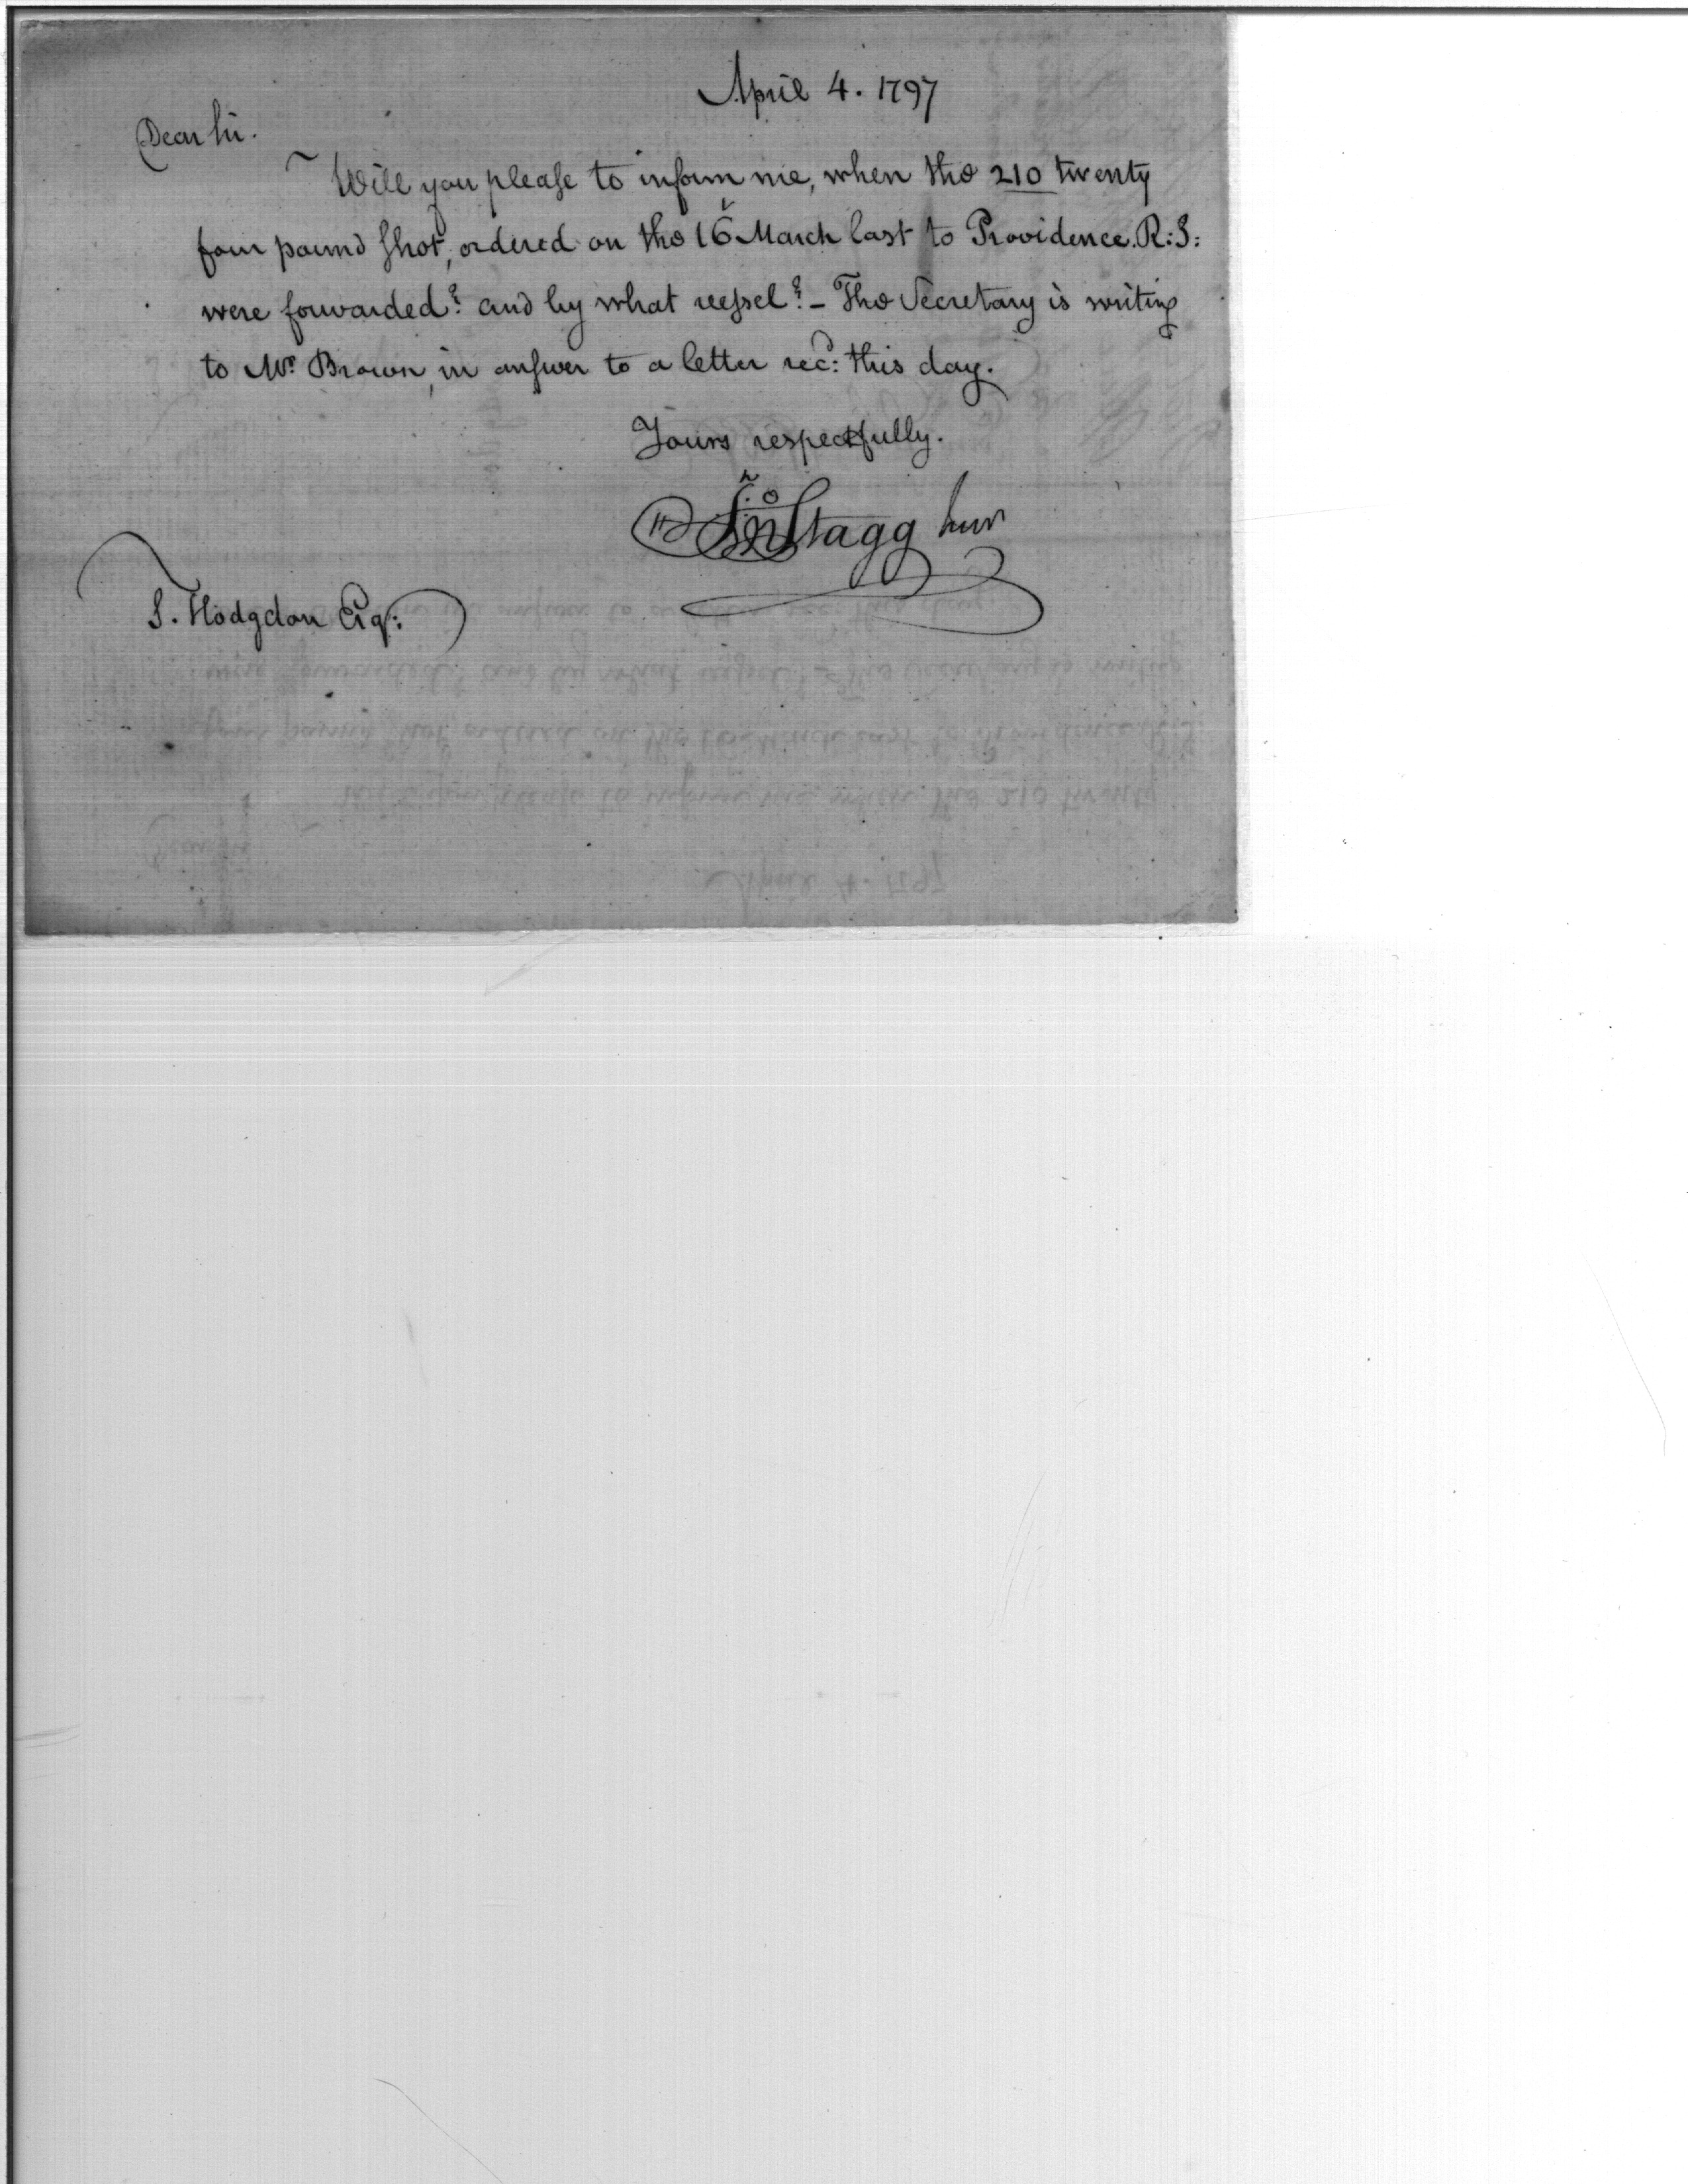 April 4. 1797
Dear Sir.
Will you please to inform me, when the 210 twenty
four pound shot, ordered on the 16 March last to Providence. R: I:
were forwarded? and by what vessel? – The Secretary is writing
to Mr. Brown, in answer to a letter recd: this day.
Yours respectfully.
Jno Stagg Junr
S. Hodgdon Esq: